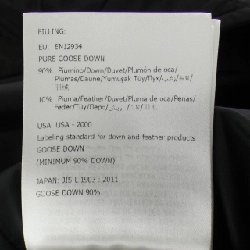 FILLING:
EU: EN12934
PURE GOOSE DOWN
90% Piumino/Down/Duvet/Plumón de oca/
Plumas/Daune/Yumuşak Tüy/Пух/
10% Piuma/Feather/Duvet/Pluma de oca/Penas/
Feder/Tüy/Перо/
USA: USA - 2000
Labeling standard for down and feather products
GOOSE DOWN
(MINIMUM 90% DOWN)
JAPAN: JIS L 1903 : 2011
GOOSE DOWN 90%